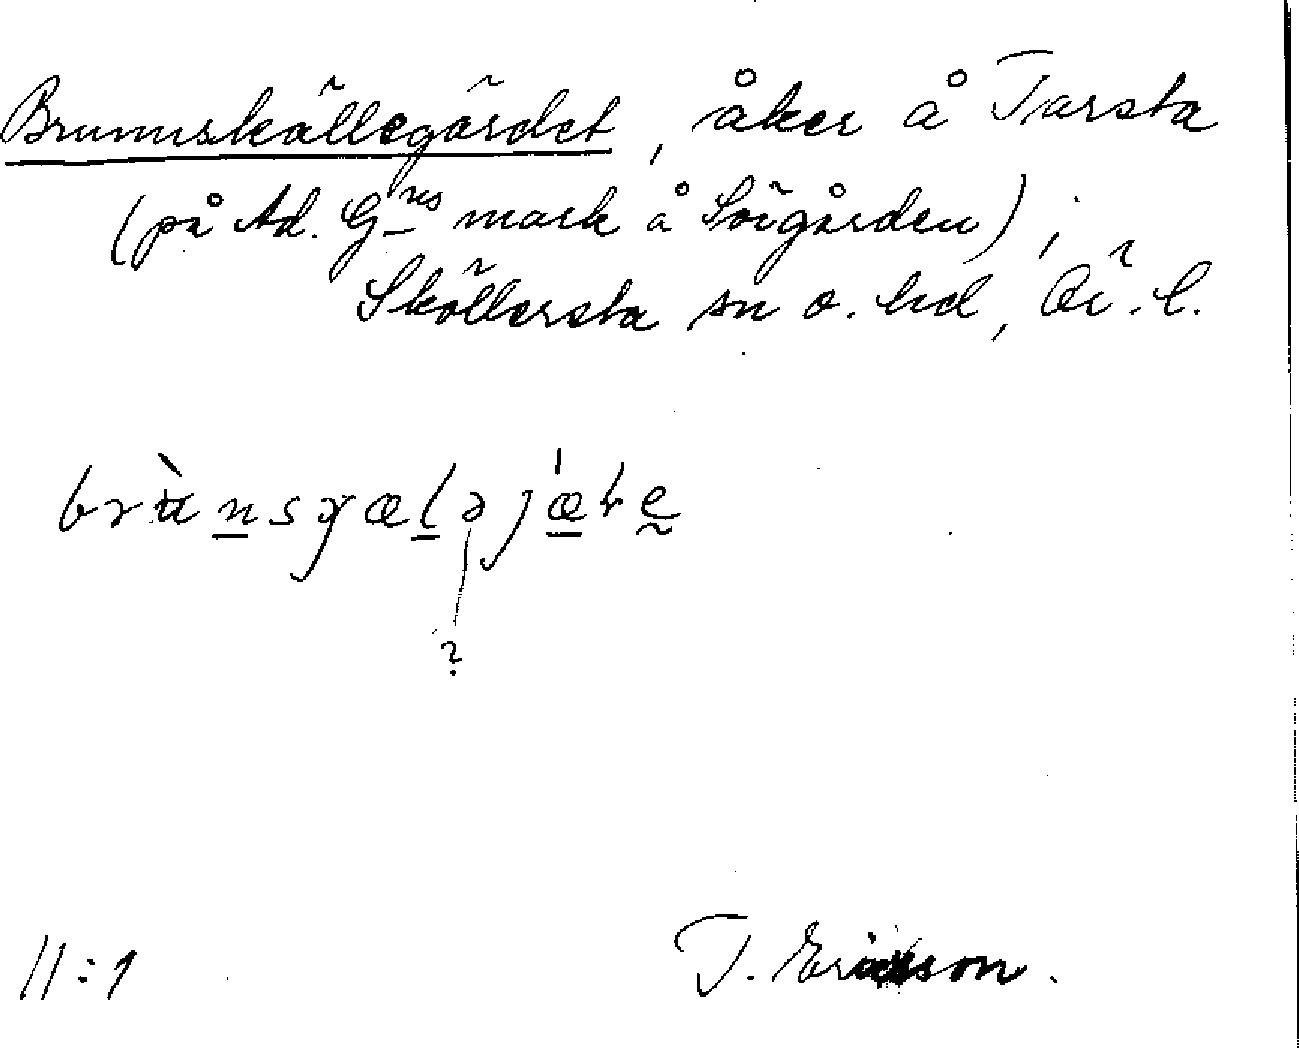 Brunnskällegärdet, åker å Tarsta
(på Ad. G-ns mark å Sörgården),
Sköllersta sn o. hd, Ör. l.
brùnsɣæləjǽʈe
?
11:1
T. Ericsson.